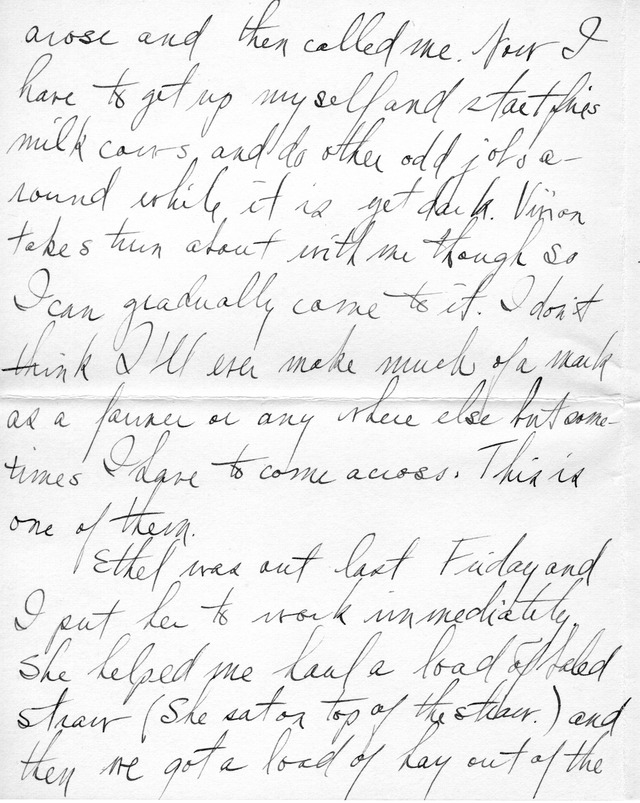 arose and then called me. Now I
have to get up myself and start fires
milk cows and do other odd jobs a-
round while it is yet dark. Vivian
takes turn about with me though so
I can gradually come to it. I don't
think I'll ever make much of a mark
as a farmer or any where else but some-
times I have to come across. This is
one of them.
Ethel was out last Friday and
I put her to work immediately.
She helped me haul a load of baled
straw (She sat on top of the straw.) and
then we got a load of hay out of the